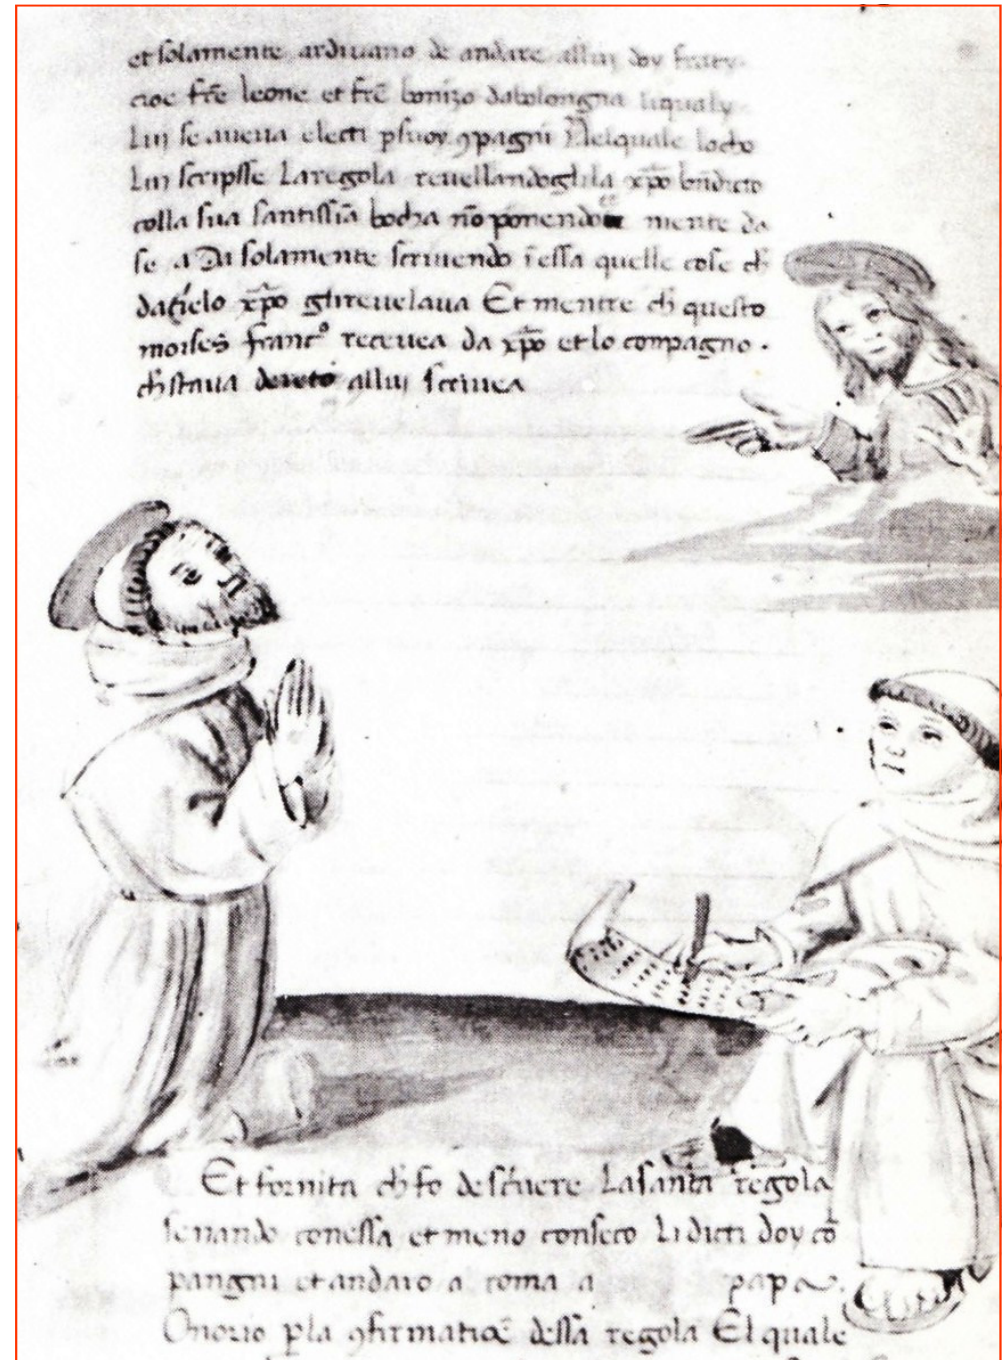 et solamente ardivano de andare allui doy fraty
cioe fr̄e leone et fr̄e bonizo dabolongna liqualy
Lui se aveva electi p suoy ꝯpagni Nelquale locho
Lui scripsse Laregola revellandoghila xp̄o bn̄dicto
colla sua santissīa bocha nō ponendo mente da
se a Di solamente scrivendo ī essa quelle cose ch
dacielo xp̄o ghirevelava Et mentre ch questo
moises franc° receveа da xp̄o et lo compagno.
ch stava dereto allui scrivea
Et fornita ch fo descrivere Lasanta regola
senando conessa et meno conseco Li dicti doy cō
pangni et andaro a roma a papa
Onorio p la ꝯfirmatioē dessa regola El quale